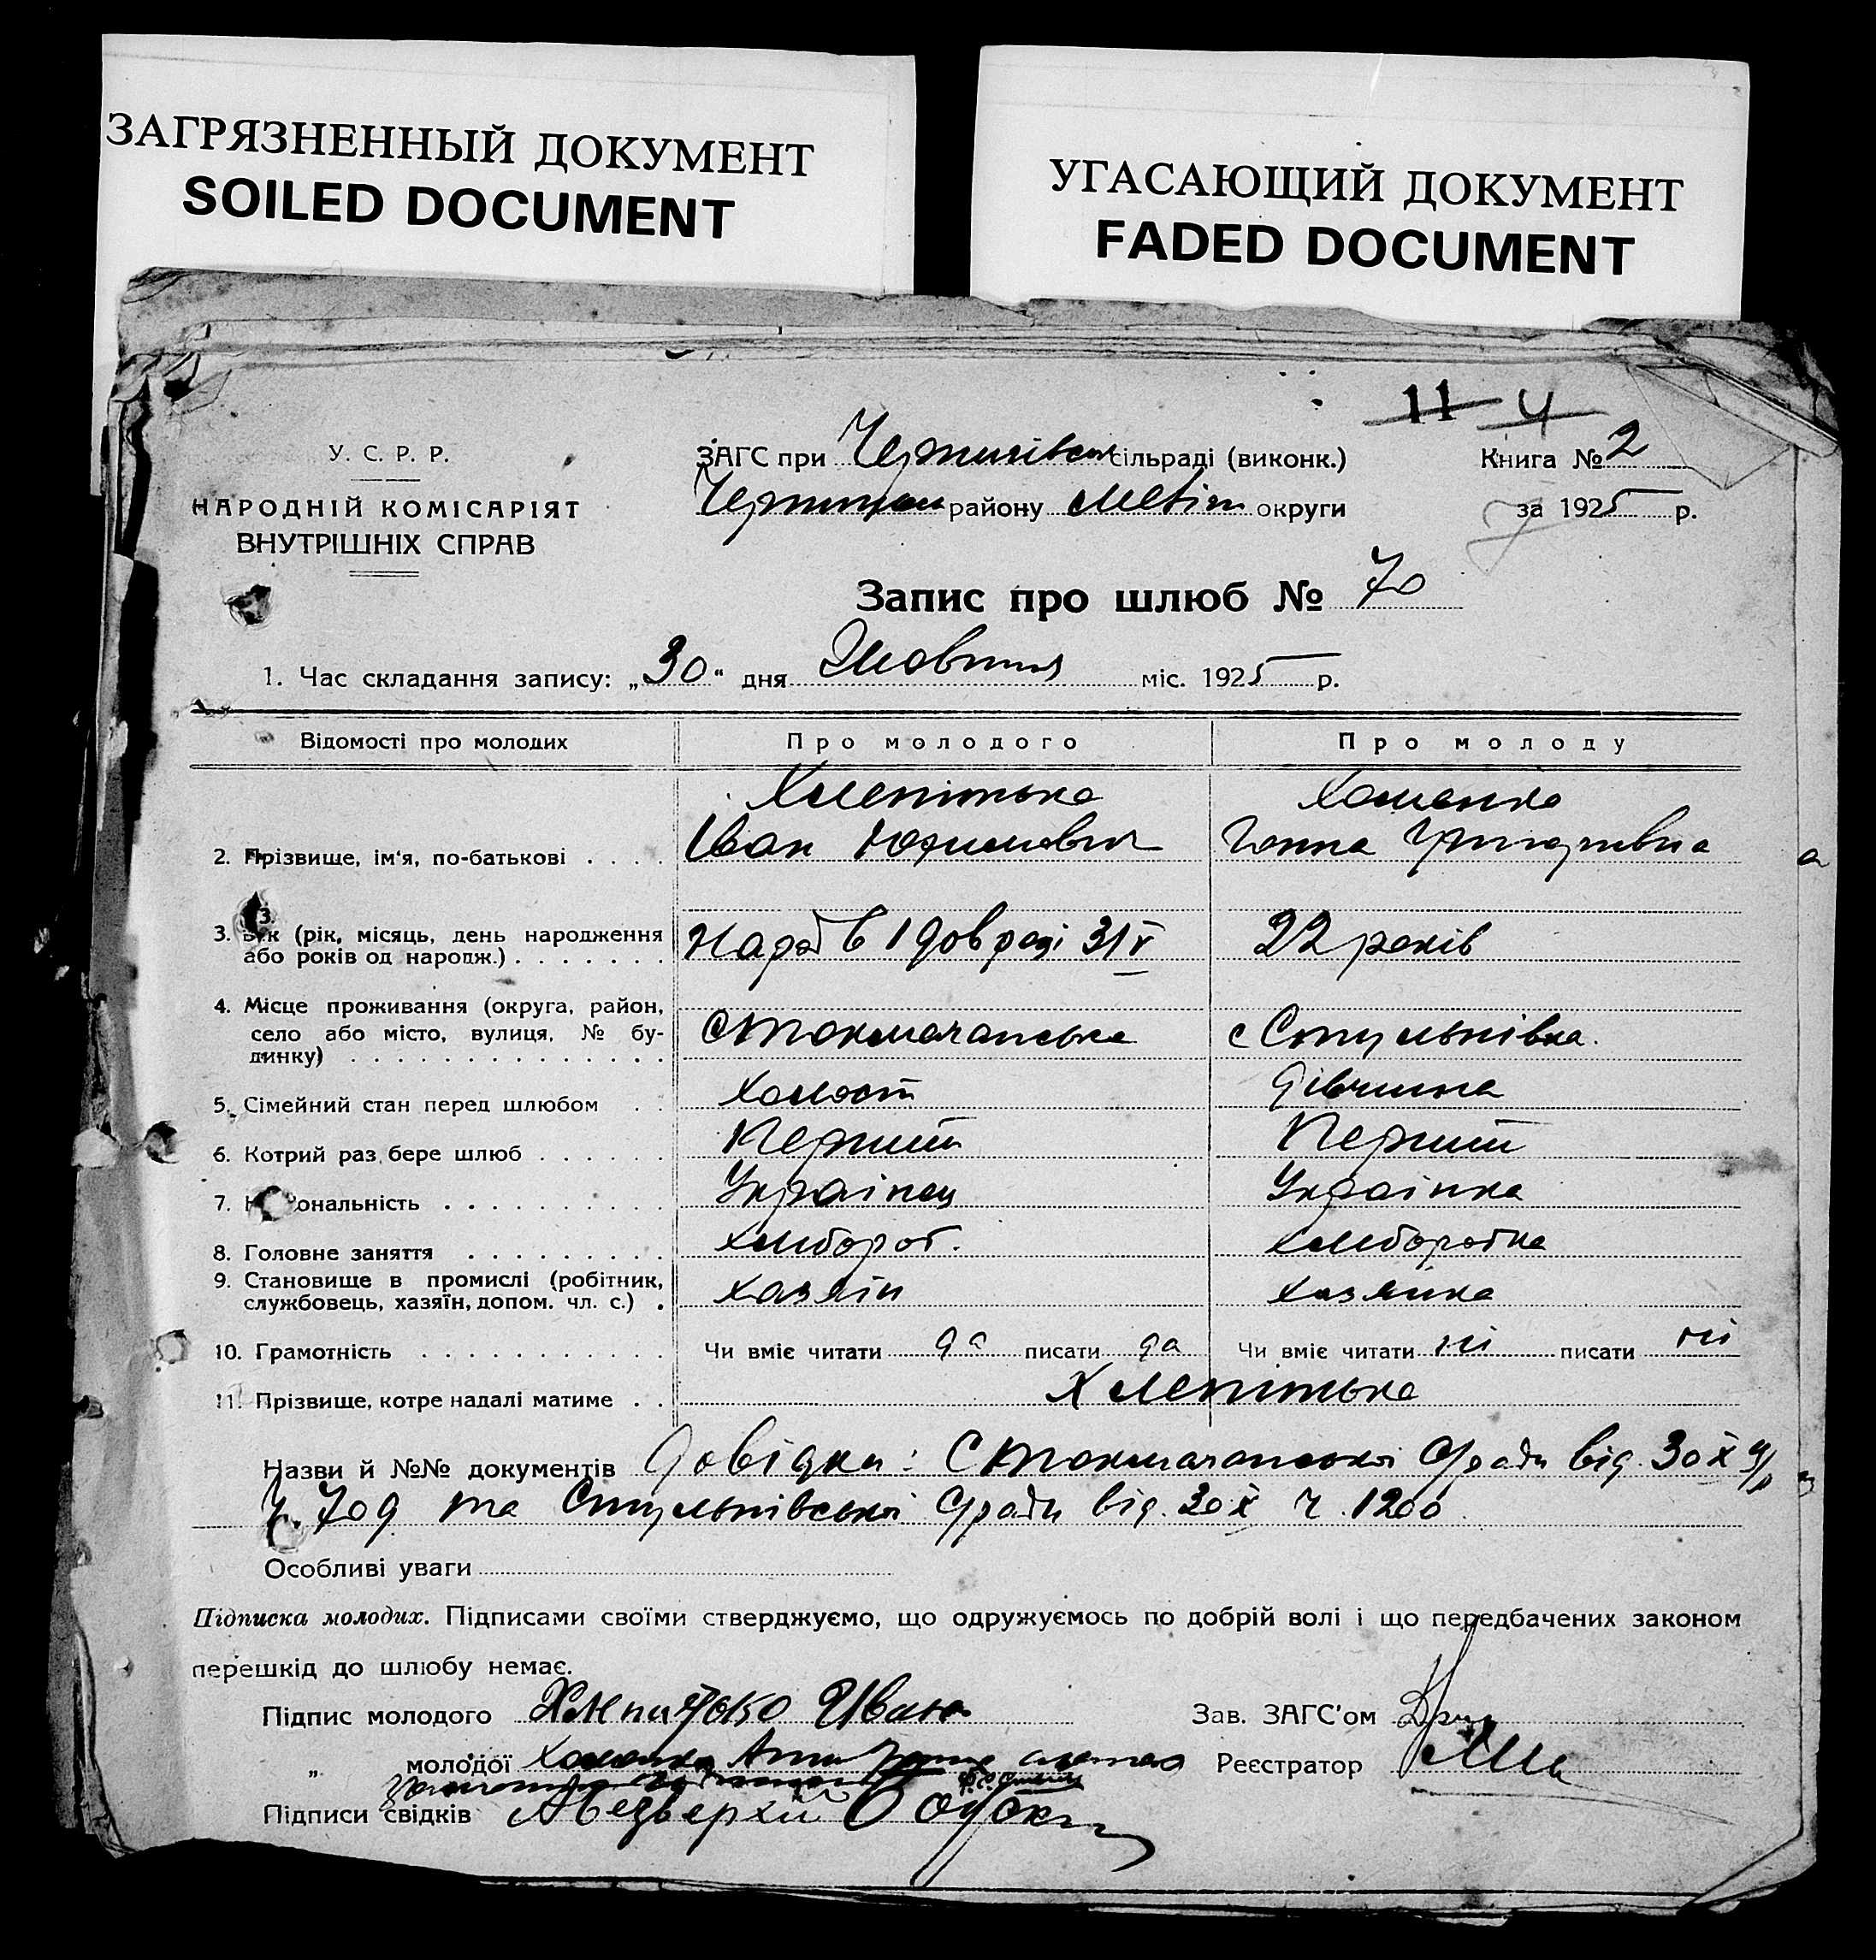 ЗАГРЯЗНЕННЫЙ ДОКУМЕНТ
SOILED DOCUMENT
УГАСАЮЩИЙ ДОКУМЕНТ
FADED DOCUMENT
11 4
У. С. Р. Р.
НАРОДНІЙ КОМІСАРІЯТ
ВНУТРІШНІХ СПРАВ
ЗАГС при сільраді (виконк.)
району округи
Книга № 2
за 1925 р.
Запис про шлюб № 70
1. Час складання запису: „30“ дня Жовтня міс. 1925 р.
Відомості про молодих Про молодого Про молоду
Хлепітько Хоменко
2. Прізвище, ім'я, по-батькові . . . . Іван Юхимович Ганна Григоривна
3. Вік (рік, місяць, день народження
або років од народж.) . . . . . . . 31 V 22 років
4. Місце проживання (округа, район,
село або місто, вулиця, № бу-
динку) . . . . . . . . . . . . . с Стульнівка.
5. Сімейний стан перед шлюбом . . Холост Дівчина
6. Котрий раз бере шлюб . . . . . . Перший Перший
7. Національність . . . . . . . . . . Українец Українка
8. Головне заняття . . . . . . . . . Хлибороб. Хлиборобка
9. Становище в промислі (робітник,
службовець, хазяїн, допом. чл. с.) . Хазяін Хазяика
10. Грамотність . . . . . . . . . . . Чи вміє читати да писати да Чи вміє читати ні писати ні
11. Прізвище, котре надалі матиме . . Хлепітько
Назви й №№ документів Довідки: від. 30 X
ч. 709 та Стульнівської с/ради від. 30 X ч. 1200
Особливі уваги
Підписка молодих. Підписами своїми стверджуємо, що одружуємось по добрій волі і що передбачених законом
перешкід до шлюбу немає.
Підпис молодого Иван
Зав. ЗАГС'ом
„ молодої Хоменко
Реєстратор
Підписи свідків